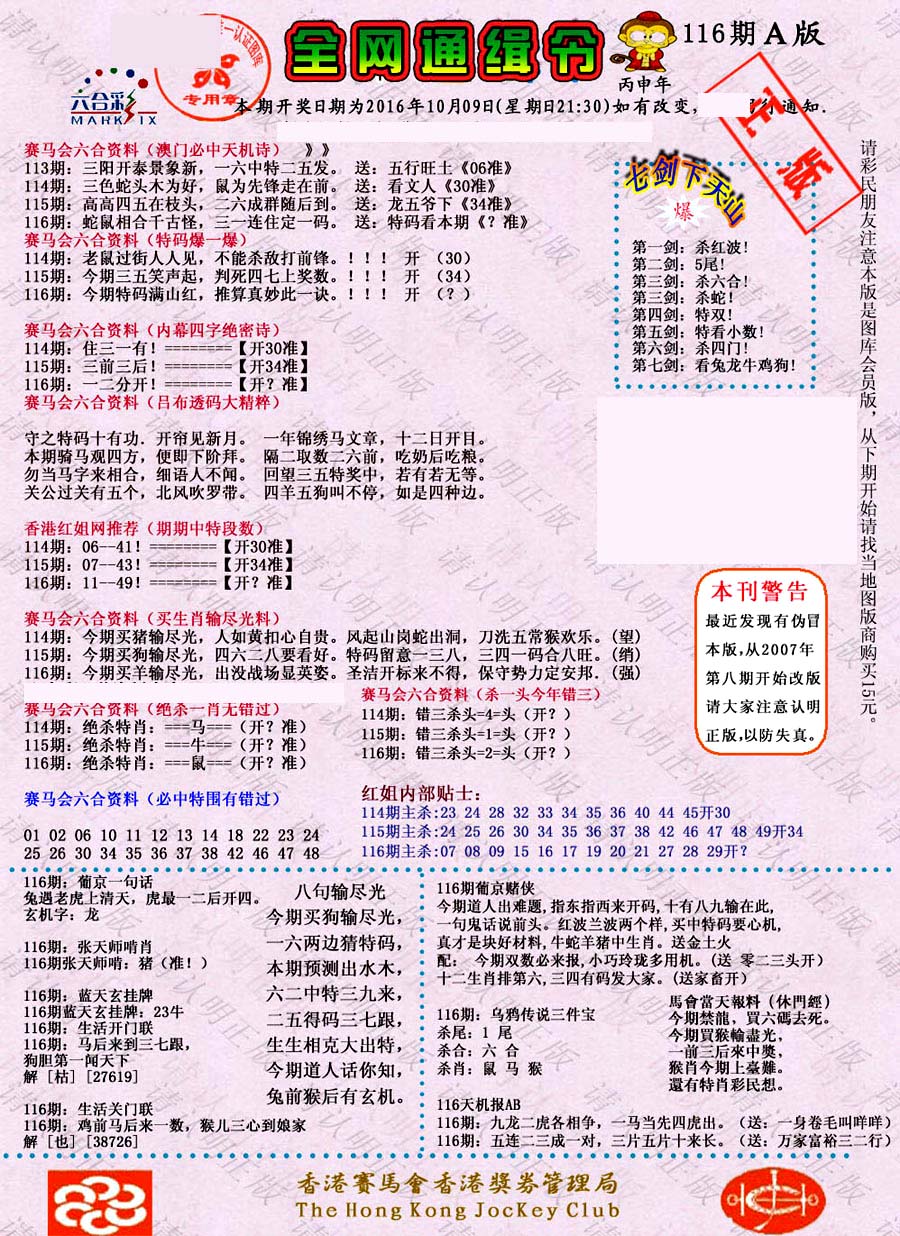 全网通缉令
116期A版
丙申年
六合彩
MARK SIX
一认证图库
专用章
正版
本期开奖日期为2016年10月09日(星期日21:30)如有改变,
通知.
赛马会六合资料（澳门必中天机诗） 》》
113期: 三阳开泰景象新，一六中特二五发。 送: 五行旺土《06准》
114期: 三色蛇头木为好，鼠为先锋走在前。 送: 看文人《30准》
115期: 高高四五在枝头，二六成群随后到。 送: 龙五爷下《34准》
116期: 蛇鼠相合千古怪，三一连住定一码。 送: 特码看本期《? 准》
赛马会六合资料（特码爆一爆）
114期: 老鼠过街人人见，不能杀敌打前锋。！！！ 开 （30）
115期: 今期三五笑声起，判死四七上奖数。！！！ 开 （34）
116期: 今期特码满山红，推算真妙此一诀。！！！ 开 （? ）
赛马会六合资料（内幕四字绝密诗）
114期: 住三一有! ========【开30准】
115期: 三前三后! ========【开34准】
116期: 一二分开! ========【开? 准】
赛马会六合资料（吕布透码大精粹）
守之特码十有功. 开帘见新月。 一年锦绣马文章，十二日开目。
本期骑马观四方，便即下阶拜。 隔二取数二六前，吃奶后吃粮。
勿当马字来相合，细语人不闻。 回望三五特奖中，若有若无等。
关公过关有五个，北风吹罗带。 四羊五狗叫不停，如是四种边。
香港红姐网推荐（期期中特段数）
114期: 06--41! ========【开30准】
115期: 07--43! ========【开34准】
116期: 11--49! ========【开? 准】
赛马会六合资料（买生肖输尽光料）
114期: 今期买猪输尽光，人如黄扣心自贵。风起山岗蛇出洞，刀洗五常猴欢乐。(望)
115期: 今期买狗输尽光，四六二八要看好。特码留意一三八，三四一码合八旺。(绡)
116期: 今期买羊输尽光，出没战场显英姿。圣洁开标来不得，保守势力定安邦．(强)
赛马会六合资料（绝杀一肖无错过）
114期: 绝杀特肖: ===马===（开? 准）
115期: 绝杀特肖: ===牛===（开? 准）
116期: 绝杀特肖: ===鼠===（开? 准）
赛马会六合资料（杀一头今年错三）
114期: 错三杀头=4=头（开? ）
115期: 错三杀头=1=头（开? ）
116期: 错三杀头=2=头（开? ）
赛马会六合资料（必中特围有错过）
01 02 06 10 11 12 13 14 18 22 23 24
25 26 30 34 35 36 37 38 42 46 47 48
红姐内部贴士：
114期主杀:23 24 28 32 33 34 35 36 40 44 45开30
115期主杀:24 25 26 30 34 35 36 37 38 42 46 47 48 49开34
116期主杀:07 08 09 15 16 17 19 20 21 27 28 29开?
七剑下天山
爆
第一剑: 杀红波!
第二剑: 5尾!
第三剑: 杀六合!
第三剑: 杀蛇!
第四剑: 特双!
第五剑: 特看小数!
第六剑: 杀四门!
第七剑: 看兔龙牛鸡狗!
请彩民朋友注意本版是图库会员版，从下期开始请找当地图版商购买15元。
本刊警告
最近发现有伪冒
本版,从2007年
第八期开始改版
请大家注意认明
正版,以防失真。
116期: 葡京一句话
兔遇老虎上清天，虎最一二后开四。
玄机字: 龙
116期: 张天师啃肖
116期张天师啃: 猪（准! ）
116期: 蓝天玄挂牌
116期蓝天玄挂牌: 23牛
116期: 生活开门联
116期: 马后来到三七跟，
狗胆第一闻天下
解 [枯] [27619]
116期: 生活关门联
116期: 鸡前马后来一数，猴儿三心到娘家
解 [也] [38726]
八句输尽光
今期买狗输尽光，
一六两边猜特码，
本期预测出水木，
六二中特三九来，
二五得码三七跟，
生生相克大出特，
今期道人话你知，
兔前猴后有玄机。
116期葡京赌侠
今期道人出难题,指东指西来开码,十有八九输在此,
一句鬼话说前头。红波兰波两个样,买中特码要心机,
真才是块好材料,牛蛇羊猪中生肖。送金土火
配: 今期双数必来报,小巧玲珑多用机。(送 零二三头开)
十二生肖排第六,三四有码发大家。(送家畜开)
116期: 乌鸦传说三件宝
杀尾: 1 尾
杀合: 六 合
杀肖: 鼠 马 猴
馬會當天報料（休門經）
今期禁龍，買六碼去死。
今期買猴輸盡光，
一前三后來中獎，
猴肖今期上臺難。
還有特肖彩民想。
116天机报AB
116期: 九龙二虎各相争，一马当先四虎出。（送: 一身卷毛叫咩咩）
116期: 五连二三成一对，三片五片十来长。（送: 万家富裕三二行）
香港賽馬會香港獎券管理局
The Hong Kong JocKey Club
请认明正版